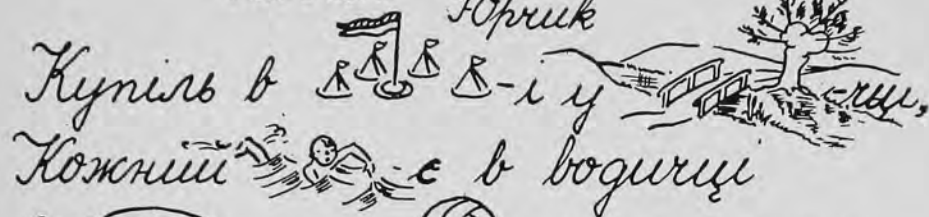 Юрчик
Купіль в -і у -чці,
Кожний -є в водичці